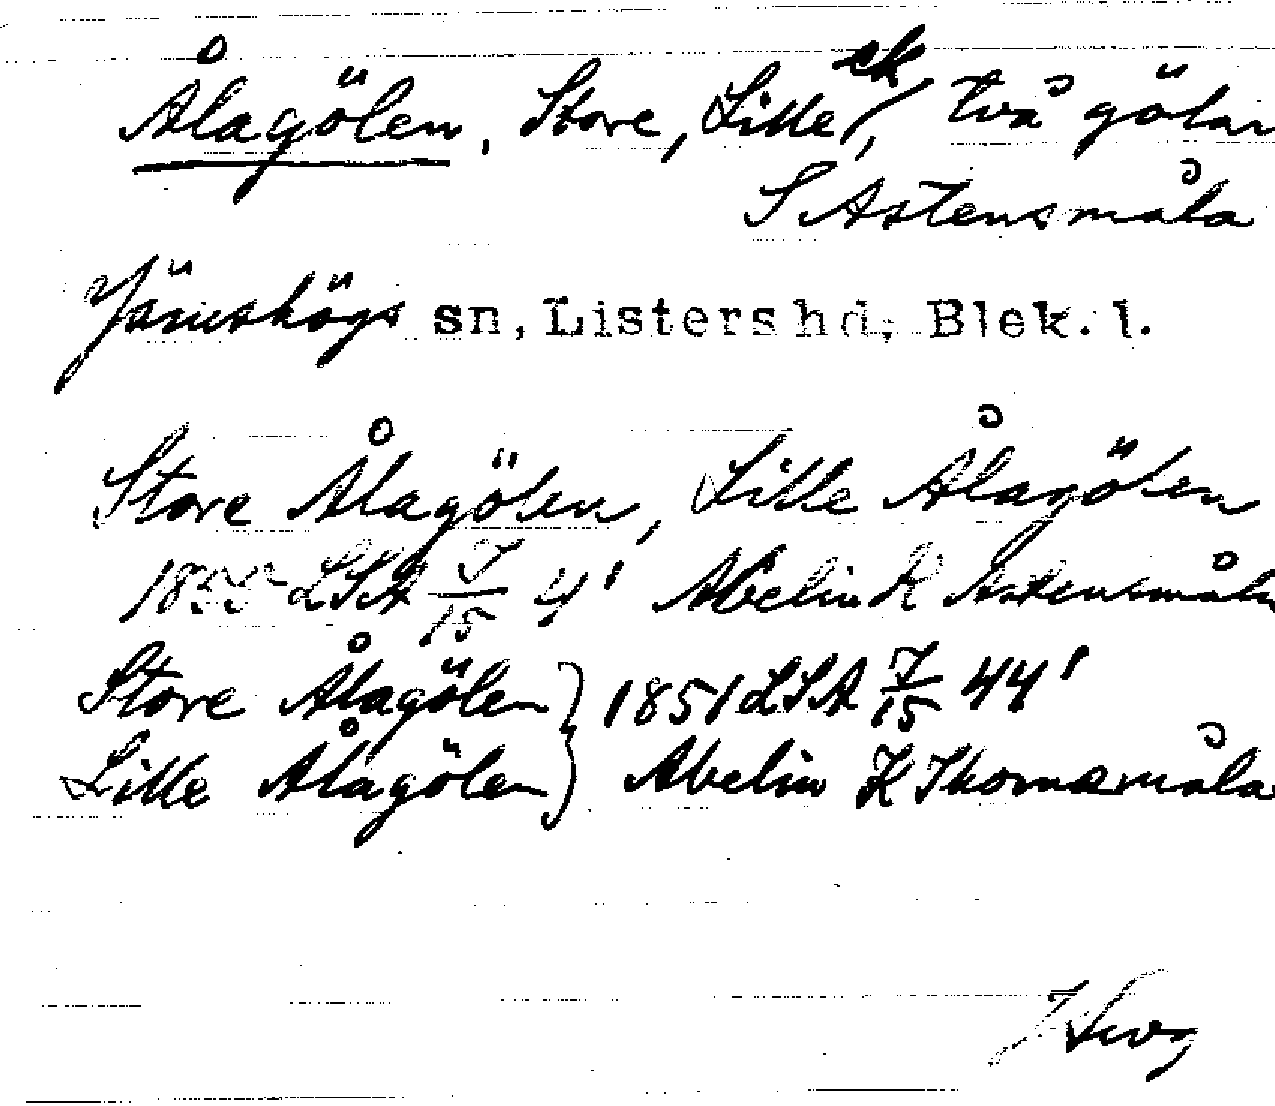 Ålagölen, Store, Lille ek/, två gölar
S Astensmåla
Jämshögs sn, Listers hd, Blek. l.
Store Ålagölen, Lille Ålagölen
1855 LSA J/15 4' Abelin K Astensmåla
Store Ålagölen } 1851 LSA J/15 44'
Lille Ålagölen } Abelin K Thomasmåla